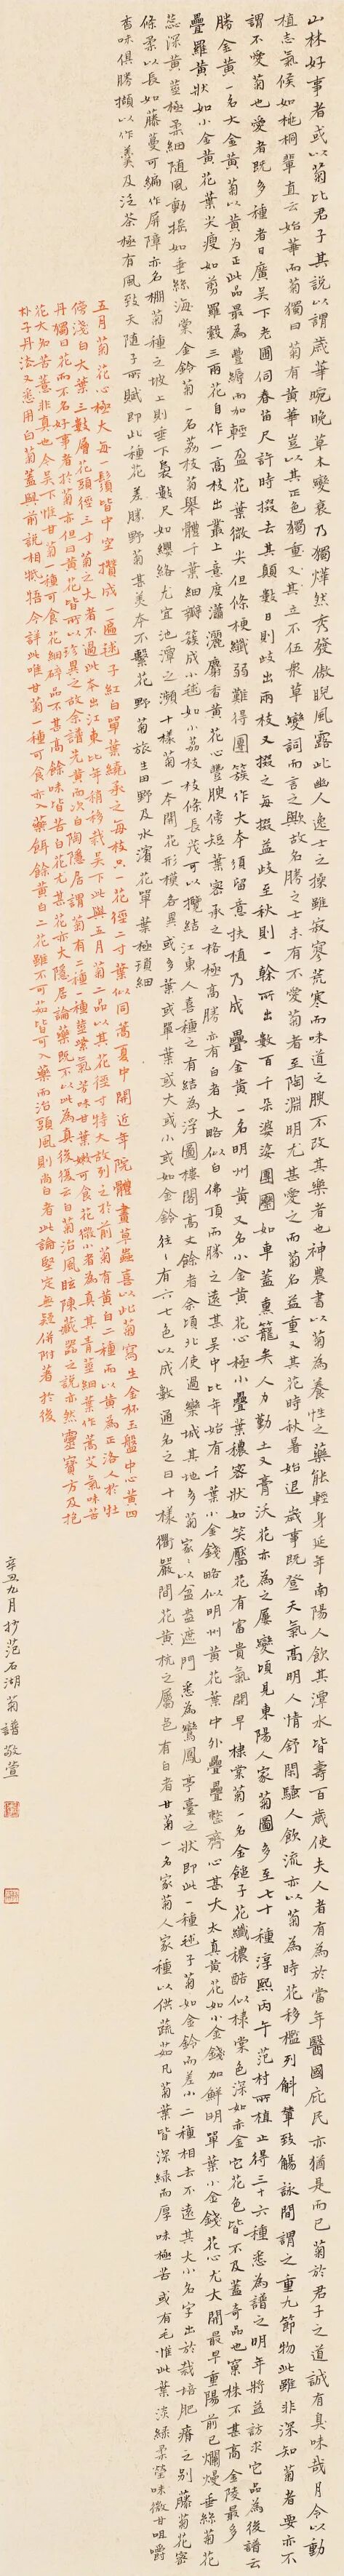 山林好事者或以菊比君子其說以謂歲華晼晚草木變衰乃獨燁然秀發傲睨風露此幽人逸士之操雖寂寥荒寒而味道之腴不改其樂者也神農書以菊為養性之藥能輕身延年南陽人飲其潭水皆壽百歲使夫人者有為於當年醫國庇民亦猶是而已菊於君子之道誠有臭味哉月令以動
植志氣候如桃桐輩直云始華而菊獨曰菊有黃華豈以其正色獨重又其立不伍眾草變詞而言之歟故名勝之士未有不愛菊者至陶淵明尤甚愛之而菊名益重又其花時秋暑始退歲事既登天氣高明人情舒閑騷人飲流亦以菊為時花移檻列斛輦致觴詠間謂之重九節物此雖非深知菊者要亦不
謂不愛菊也愛者既多種者日廣吳下老圃伺春苗尺許時掇去其顛數日則歧出兩枝又掇之每掇益歧至秋則一榦所出數百千朵婆娑團圝如車蓋熏籠矣人力勤土又膏沃花亦為之屢變頃見東陽人家菊圖多至七十種淳熙丙午范村所植止得三十六種悉為譜之明年將益訪求它品為後譜云
勝金黃一名大金黃菊以黃為正此品最為豐縟而加輕盈花葉微尖但條梗纖弱難得團簇作大本須留意扶植乃成 疊金黃一名明州黃又名小金黃花心極小疊葉穠密狀如笑靨花有富貴氣開早 棣棠菊一名金鎚子花纖穠酷似棣棠色深如赤金它花色皆不及蓋奇品也窠株不甚高金陵最多
疊羅黃狀如小金黃花葉尖瘦如剪羅縠三兩花自作一高枝出叢上意度瀟灑麝香黃花心豐腴傍短葉密承之格極高勝亦有白者大略似白佛頂而勝之遠甚吳中比年始有千葉小金錢略似明州黃花葉中外疊疊整齊心甚大太真黃花如小金錢加鮮明單葉小金錢花心尤大開最早重陽前已爛熳垂絲菊花
蕊深黃莖極柔細隨風動搖如垂絲海棠金鈴菊一名荔枝菊舉體千葉細瓣簇成小毬如小荔枝枝條長茂可以攬結江東人喜種之有結為浮圖樓閣高丈餘者余頃北使過欒城其地多菊家々以盆盎遮門悉為鸞鳳亭臺之狀即此一種毬子菊如金鈴而差小二種相去不遠其大小名字出於栽培肥瘠之別藤菊花密
條柔以長如藤蔓可編作屏障亦名棚菊種之坡上則垂下裊數尺如纓絡尤宜池潭之瀕十樣菊一本開花形模各異或多葉或單葉或大或小或如金鈴往々有六七色以成數通名之曰十樣衢嚴間花黃杭之屬邑有白者甘菊一名家菊人家種以供蔬茹凡菊葉皆深綠而厚味極苦或有毛惟此葉淡綠柔瑩味微甘咀嚼
香味俱勝擷以作羹及泛茶極有風致天隨子所賦即此種花差勝野菊甚美本不繫花野菊旅生田野及水濱花單葉極瑣細
五月菊花心極大每一鬚皆中空攢成一匾毬子紅白單葉繞承之每枝只一花徑二寸葉似同蒿夏中開近年院體畫草蟲喜以此菊寫生金杯玉盤中心黃四
傍淺白大葉三數層花頭徑三寸菊之大者不過此本出江東比年稍移栽吳下此與五月菊二品以其花徑寸特大故列之於前菊有黃白二種而以黃為正洛人於牡
丹獨曰花而不名好事者於菊亦但曰黃花皆所以珍異之故余譜先黃而次白陶隱居謂菊有二種一種莖紫氣香味甘葉嫩可食花微小者為真其青莖細葉作蒿艾氣味苦
花大名苦薏非真也今吳下惟甘菊一種可食花細碎品不甚高餘味皆苦白花尤甚花亦大隱居論藥既不以此為真後復云白菊治風眩陳藏器之說亦然靈寶方及抱
朴子丹法又悉用白菊蓋與前說相牴牾今詳此唯甘菊一種可食亦入藥餌餘黃白二花雖不可茹皆可入藥而治頭風則尚白者此論堅定無疑併附著於後
辛丑九月抄范石湖菊譜 敬萱